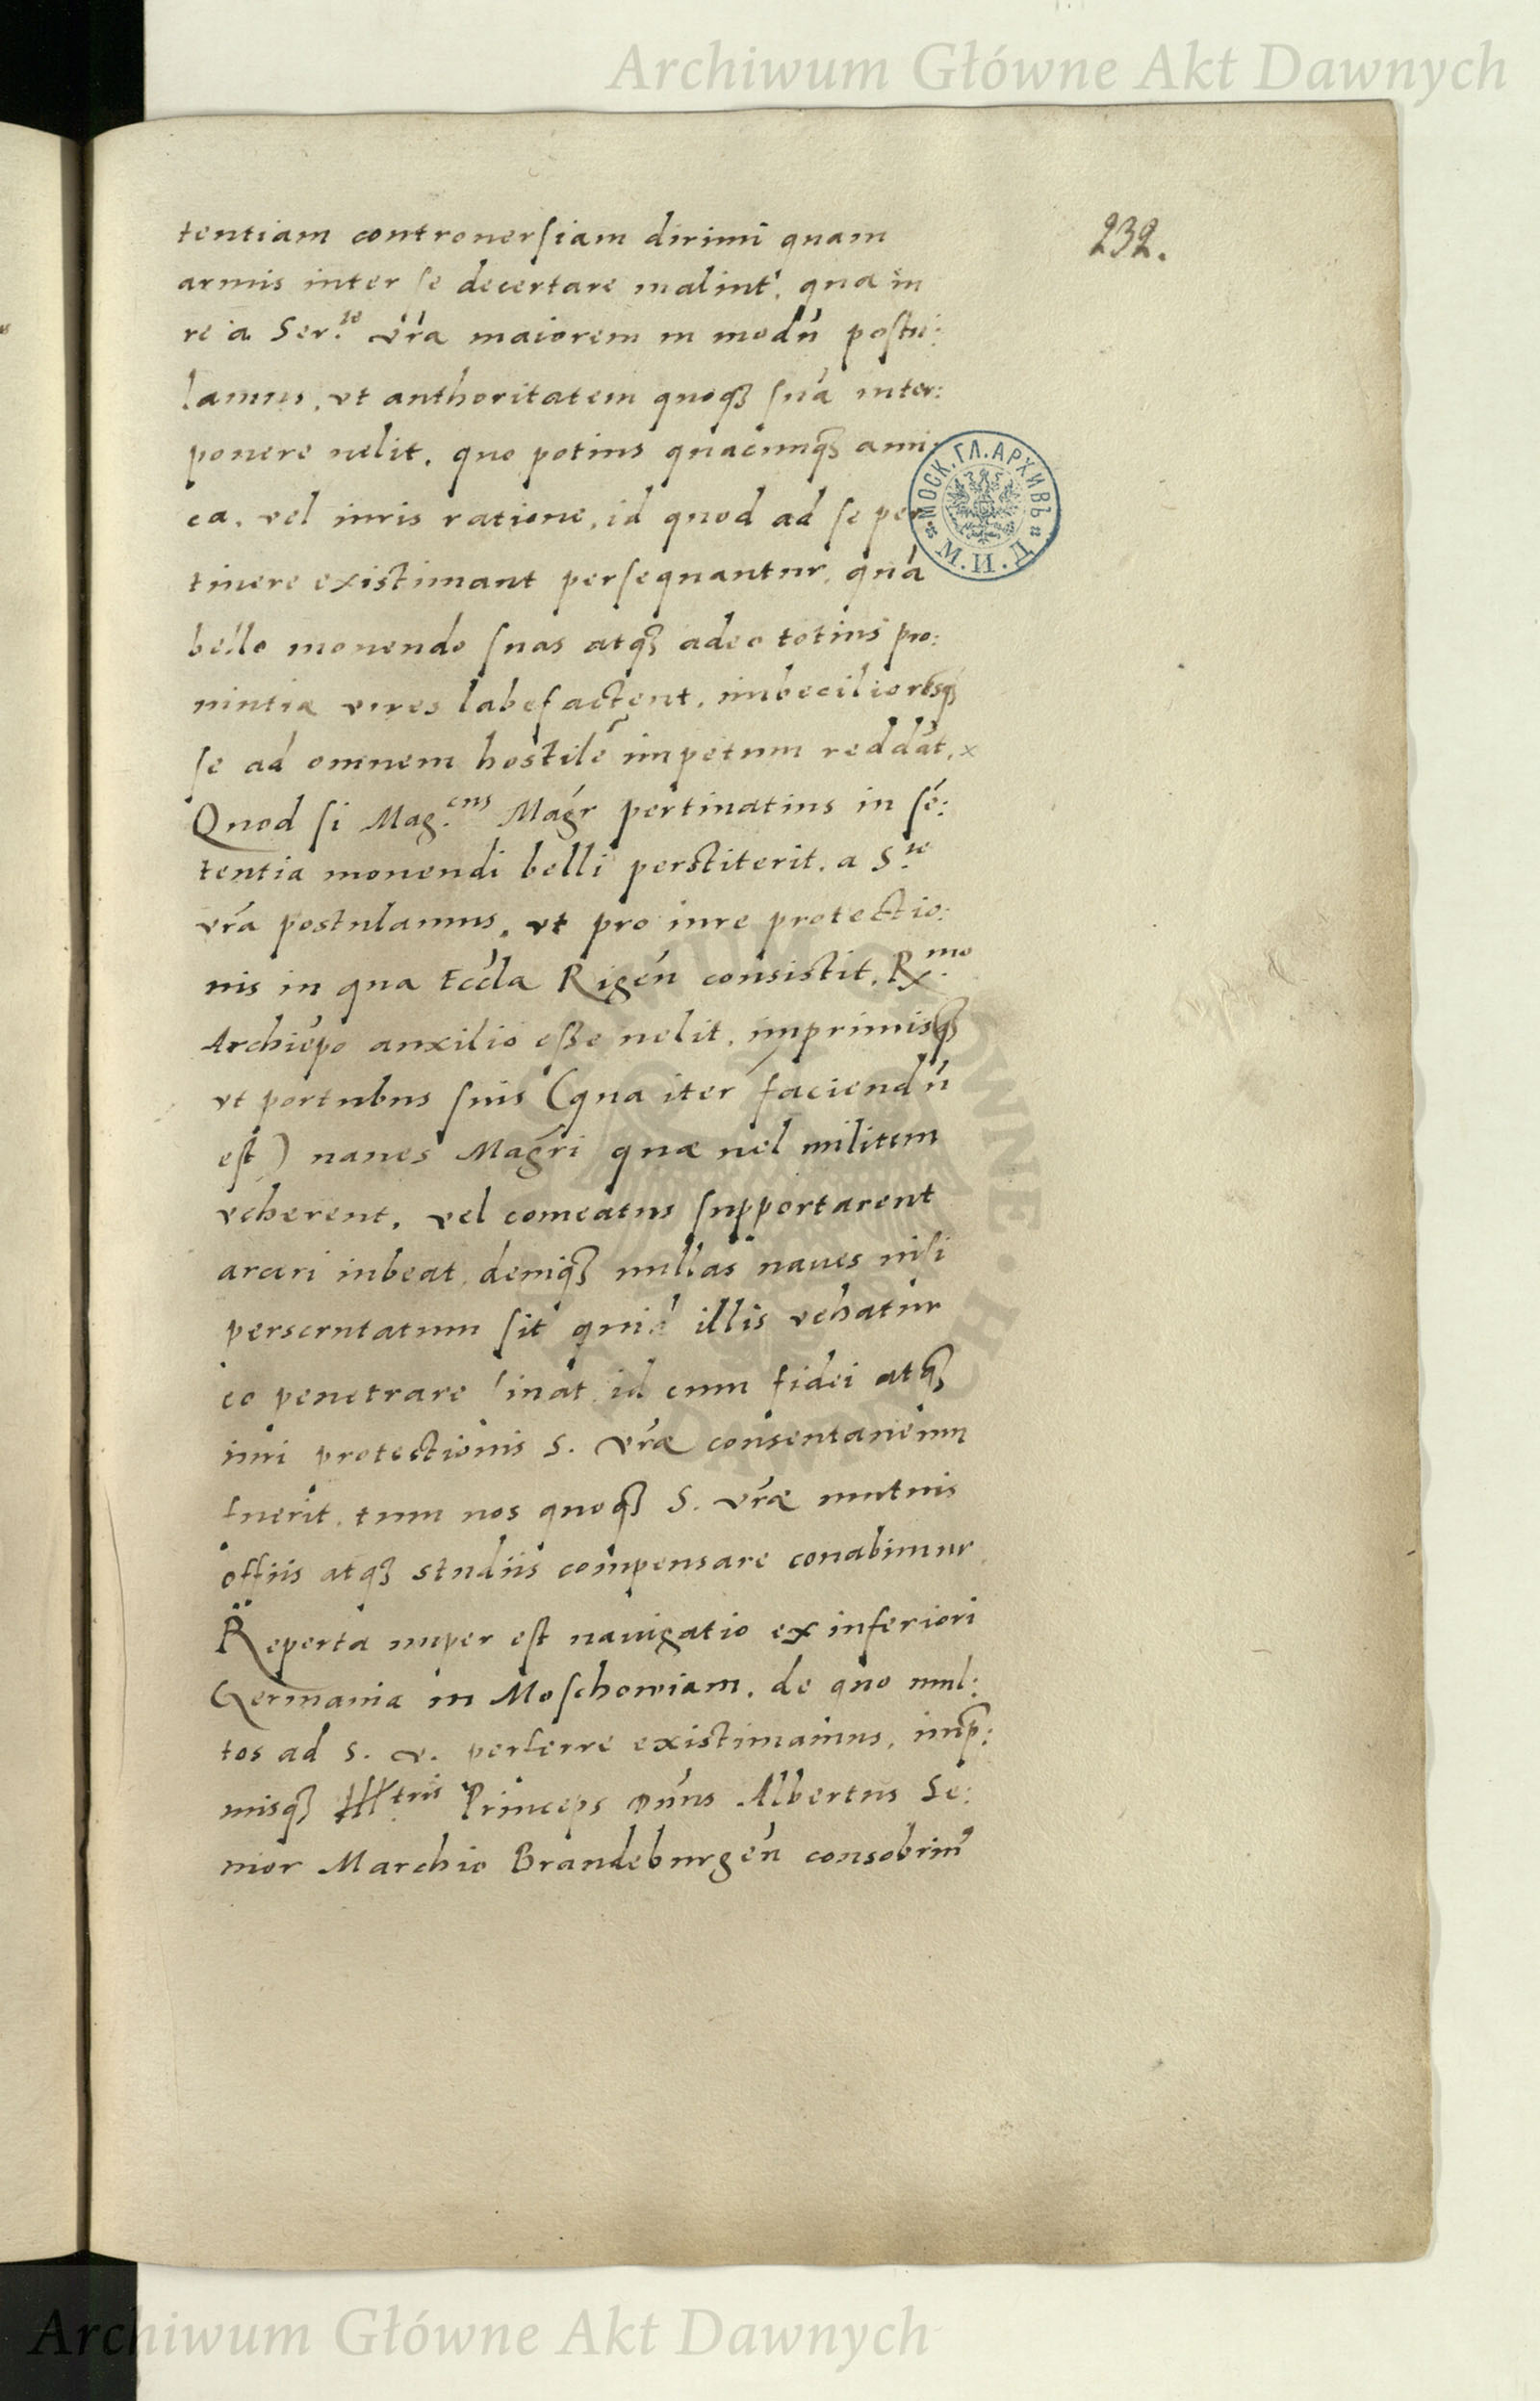 Archiwum Główne Akt Dawnych
232.
tentiam controuersiam dirimi quam
armis inter se decertare malint, qua in
re a Ser.te vr̃a maiorem in modũ postu:
lamus, vt authoritatem quoqȝ suã inter:
ponere uelit, quo potius quacunqȝ ami
ca, vel iuris ratione, id quod ad se per
tinere existimant persequantur, quã
bello mouendo suas atqȝ adeo totius pro:
uintiæ vires labefactent, imbecilioresqȝ
se ad omnem hostilẽ impetum reddãt,
Quod si Mag.cus Magr̃ pertinatius in sẽ:
tentia mouendi belli perstiterit, a S.te
vr̃a postulamus, vt pro iure protectio:
nis in qua Eccl̃a Rigeñ consistit, R.mo
Archiep̃o auxilio esse uelit, imprimisqȝ
vt portubus suis (qua iter faciendũ
est) naues Magr̃i quæ uel militem
veherent, vel comeatus supportarent
arceri iubeat, deniqȝ nullas naues nisi
perscrutatum sit quid illis vehatur
eo penetrare sinat, id cum fidei atqȝ
iuri protectionis S. vr̃æ consentaneum
fuerit, tum nos quoqȝ S. vr̃æ mutuis
offiis atqȝ studiis compensare conabimur
Reperta nuper est nauigatio ex inferiori
Germania in Moschouiam, de quo mul:
tos ad S. v. perferre existimamus, imp̃:
misqȝ Ill.tris Princeps Dñus Albertus Se:
nior Marchio Brandeburgeñ consobrin9
МОСК.ГЛ.АРХИВЪ
М.И.Д.
Archiwum Główne Akt Dawnych